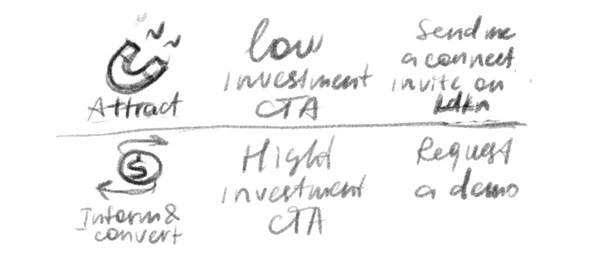 Attract
low
investment
CTA
Send me
a connect
invite on
Ldkn
$
Inform &
convert
Hight
investment
CTA
Request
a demo